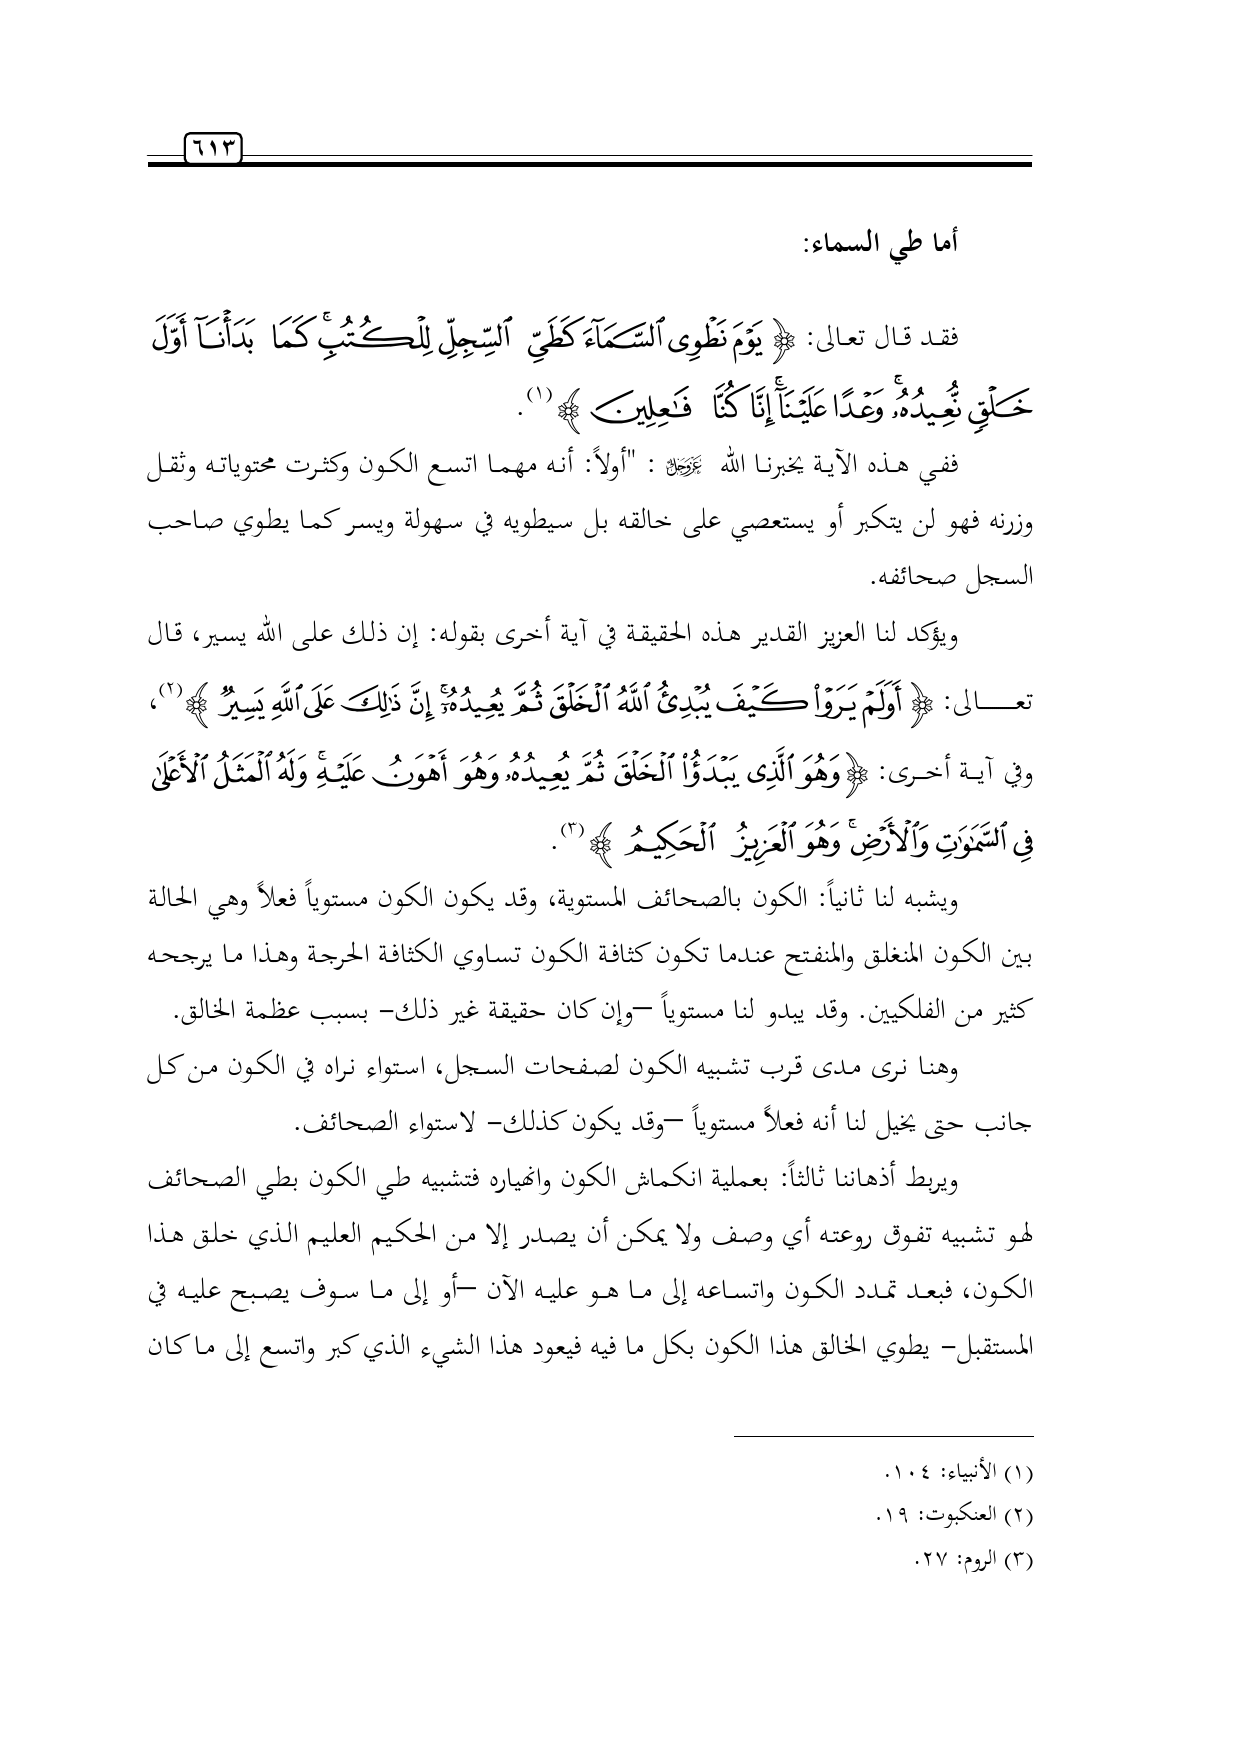 ٦١٣
أما طي السماء:
فقد قال تعالى: ﴿ يَوْمَ نَطْوِى ٱلسَّمَآءَ كَطَىِّ ٱلسِّجِلِّ لِلْكُتُبِ ۚ كَمَا بَدَأْنَآ أَوَّلَ
خَلْقٍ نُّعِيدُهُۥ ۚ وَعْدًا عَلَيْنَآ ۚ إِنَّا كُنَّا فَٰعِلِينَ ﴾(١).
ففي هذه الآية يخبرنا الله عَزَّوَجَلَّ : "أولاً: أنه مهما اتسع الكون وكثرت محتوياته وثقل
وزرنه فهو لن يتكبر أو يستعصي على خالقه بل سيطويه في سهولة ويسر كما يطوي صاحب
السجل صحائفه.
ويؤكد لنا العزيز القدير هذه الحقيقة في آية أخرى بقوله: إن ذلك على الله يسير، قال
تعـــالى: ﴿ أَوَلَمْ يَرَوْا۟ كَيْفَ يُبْدِئُ ٱللَّهُ ٱلْخَلْقَ ثُمَّ يُعِيدُهُۥٓ ۚ إِنَّ ذَٰلِكَ عَلَى ٱللَّهِ يَسِيرٌ ﴾(٢)،
وفي آية أخرى: ﴿ وَهُوَ ٱلَّذِى يَبْدَؤُا۟ ٱلْخَلْقَ ثُمَّ يُعِيدُهُۥ وَهُوَ أَهْوَنُ عَلَيْهِ ۚ وَلَهُ ٱلْمَثَلُ ٱلْأَعْلَىٰ
فِى ٱلسَّمَٰوَٰتِ وَٱلْأَرْضِ ۚ وَهُوَ ٱلْعَزِيزُ ٱلْحَكِيمُ ﴾(٣).
ويشبه لنا ثانياً: الكون بالصحائف المستوية، وقد يكون الكون مستوياً فعلاً وهي الحالة
بين الكون المنغلق والمنفتح عندما تكون كثافة الكون تساوي الكثافة الحرجة وهذا ما يرجحه
كثير من الفلكيين. وقد يبدو لنا مستوياً –وإن كان حقيقة غير ذلك– بسبب عظمة الخالق.
وهنا نرى مدى قرب تشبيه الكون لصفحات السجل، استواء نراه في الكون من كل
جانب حتى يخيل لنا أنه فعلاً مستوياً –وقد يكون كذلك– لاستواء الصحائف.
ويربط أذهاننا ثالثاً: بعملية انكماش الكون وانهياره فتشبيه طي الكون بطي الصحائف
لهو تشبيه تفوق روعته أي وصف ولا يمكن أن يصدر إلا من الحكيم العليم الذي خلق هذا
الكون، فبعد تمدد الكون واتساعه إلى ما هو عليه الآن –أو إلى ما سوف يصبح عليه في
المستقبل– يطوي الخالق هذا الكون بكل ما فيه فيعود هذا الشيء الذي كبر واتسع إلى ما كان
(١) الأنبياء: ١٠٤.
(٢) العنكبوت: ١٩.
(٣) الروم: ٢٧.